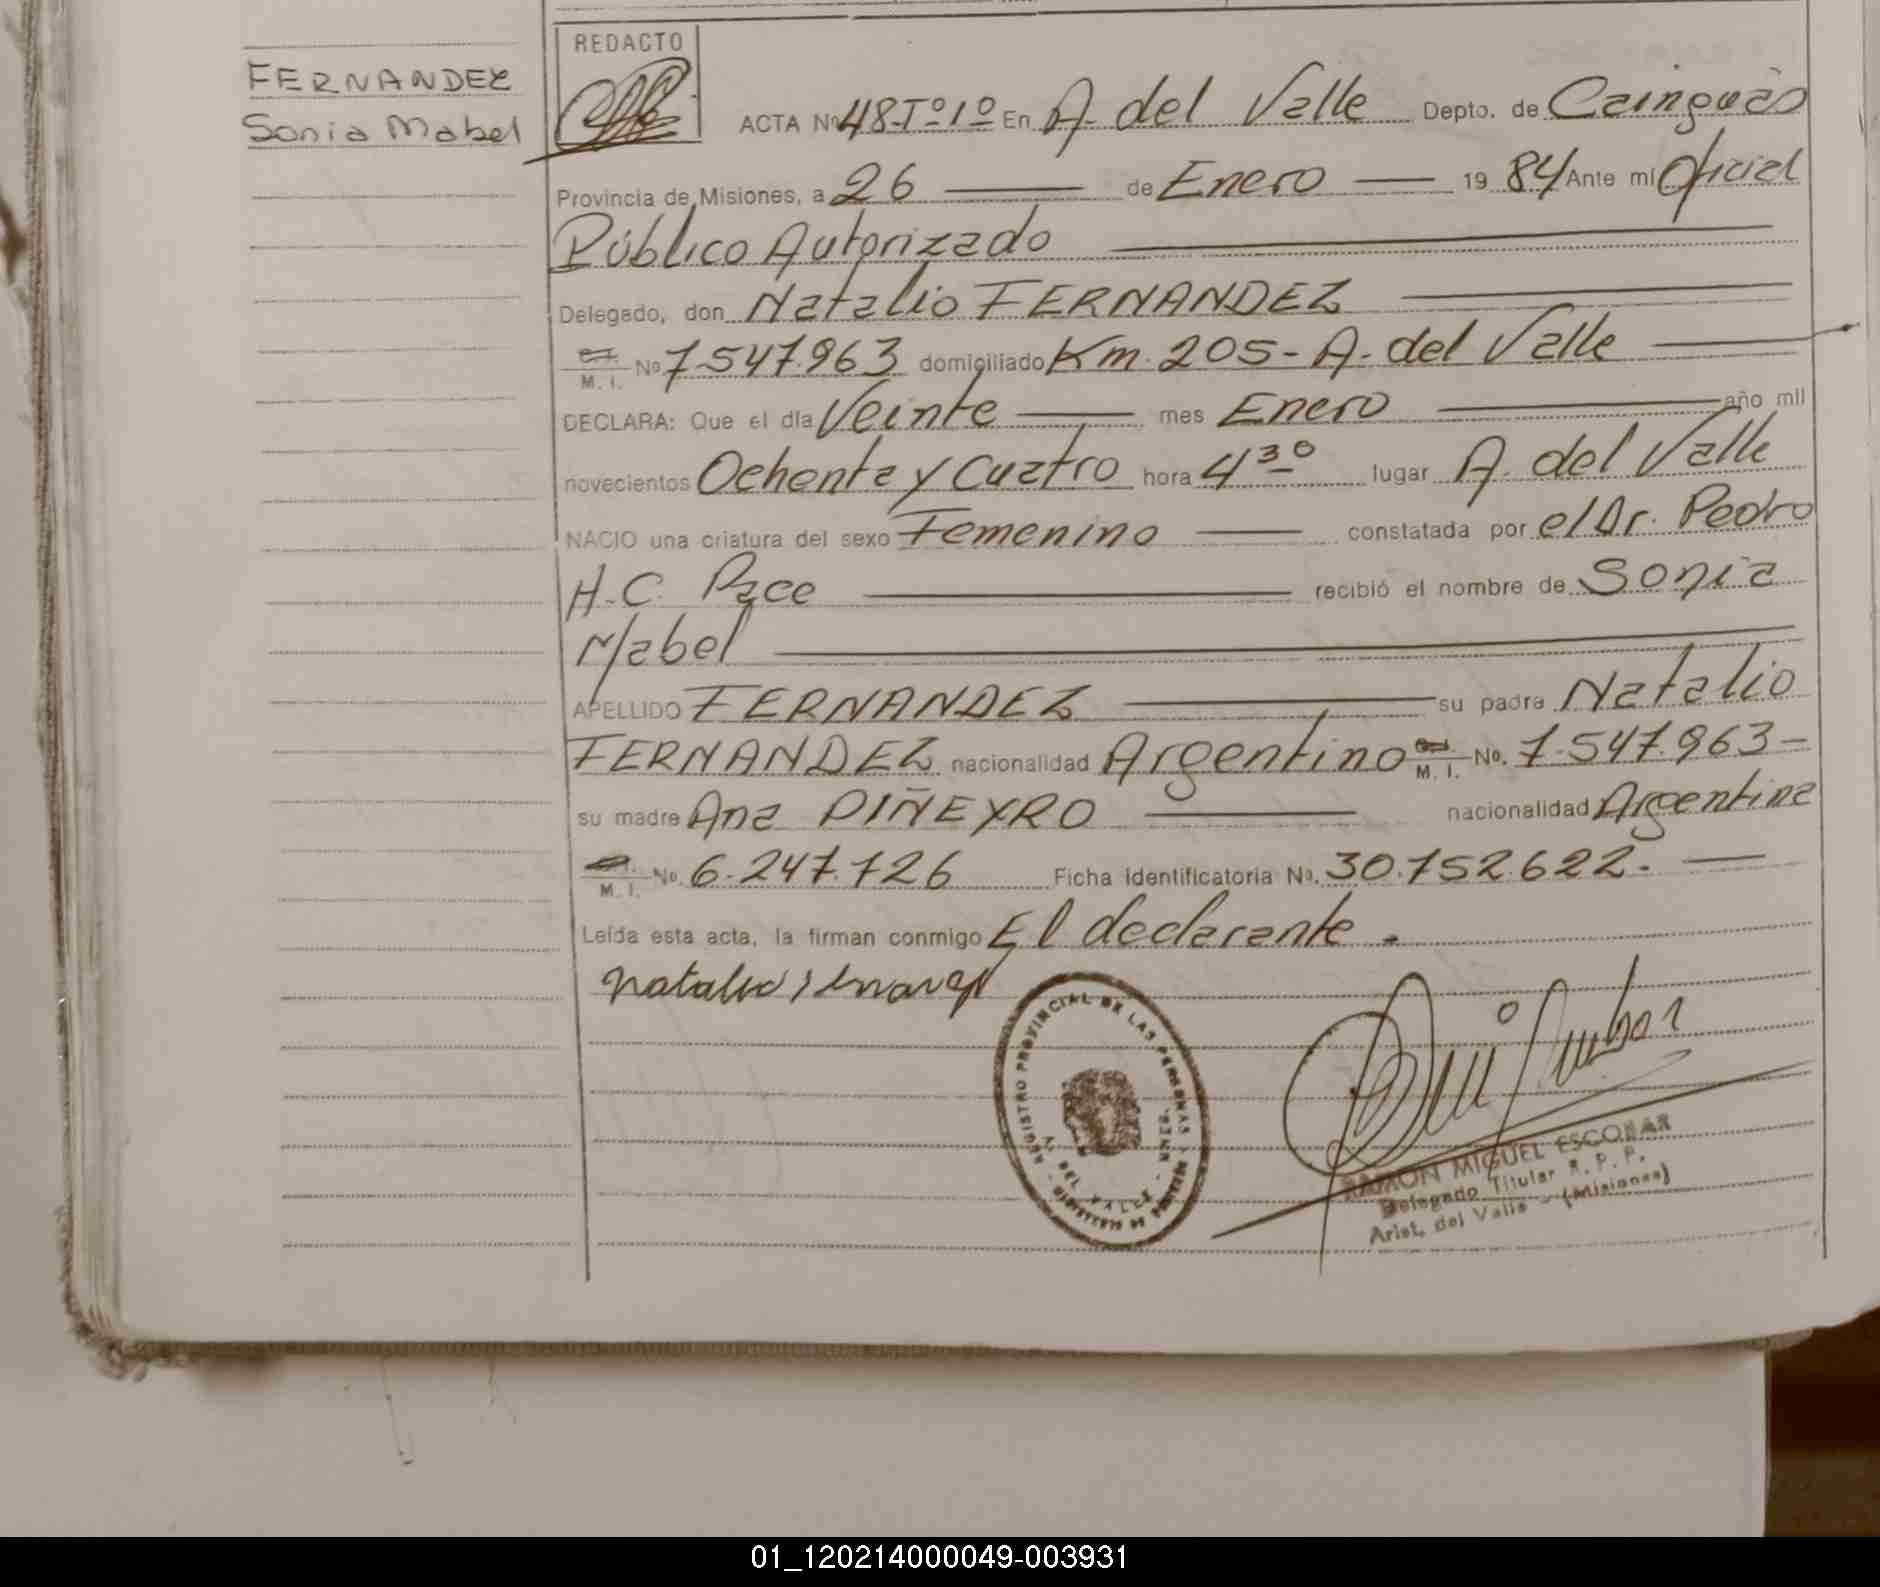 FERNANDEZ
Sonia Mabel
REDACTO
ACTA Nº 48-Tº1º En A. del Valle Depto. de Cainguás
Provincia de Misiones, a 26 de Enero 19 84 Ante mí Oficial
Público Autorizado
Delegado, don Natalio FERNANDEZ
M. I. Nº 7.547.963 domiciliado Km. 205 - A. del Valle
DECLARA: Que el día Veinte mes Enero año mil
novecientos Ochenta y Cuatro hora 4 30 lugar A. del Valle
NACIO una criatura del sexo Femenino constatada por el Dr. Pedro
H. C. Pace recibió el nombre de Sonia
Mabel
APELLIDO FERNANDEZ su padre Natalio
FERNANDEZ nacionalidad Argentino M. I. No. 7.547.963-
su madre Ana PIÑEYRO nacionalidad Argentina
M. I. No. 6.247.726 Ficha Identificatoria No. 30.752.622.-
Leída esta acta, la firman conmigo El declarante.
REGISTRO PROVINCIAL DE LAS PERSONAS
RAMON MIGUEL ESCOBAR
Delegado Titular R. P. P.
Arist. del Valle - (Misiones)
01_120214000049-003931